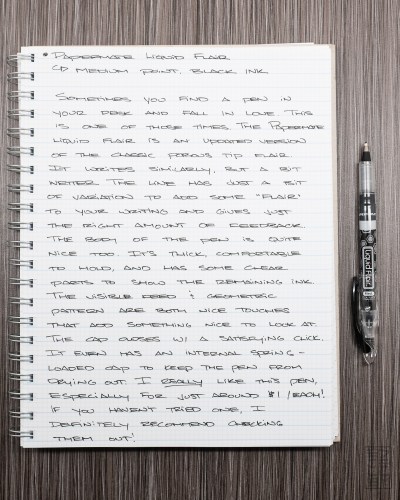 • Papermate Liquid Flair
↳ Medium Point, Black Ink
Sometimes you find a pen in
your desk and fall in love. This
is one of those times. The Papermate
Liquid Flair is an updated version
of the classic porous tip Flair.
It writes similarly, but a bit
wetter. The line has just a bit
of variation to add some "flair"
to your writing and gives just
the right amount of feedback.
The body of the pen is quite
nice too. It's thick, comfortable
to hold, and has some clear
parts to show the remaining ink.
The visible feed & geometric
pattern are both nice touches
that add something nice to look at.
The cap closes w/ a satisfying click.
It even has an internal spring-
loaded cap to keep the pen from
drying out. I really like this pen,
especially for just around $1/each!
If you haven't tried one, I
definitely recommend checking
them out!
Liquid Flair